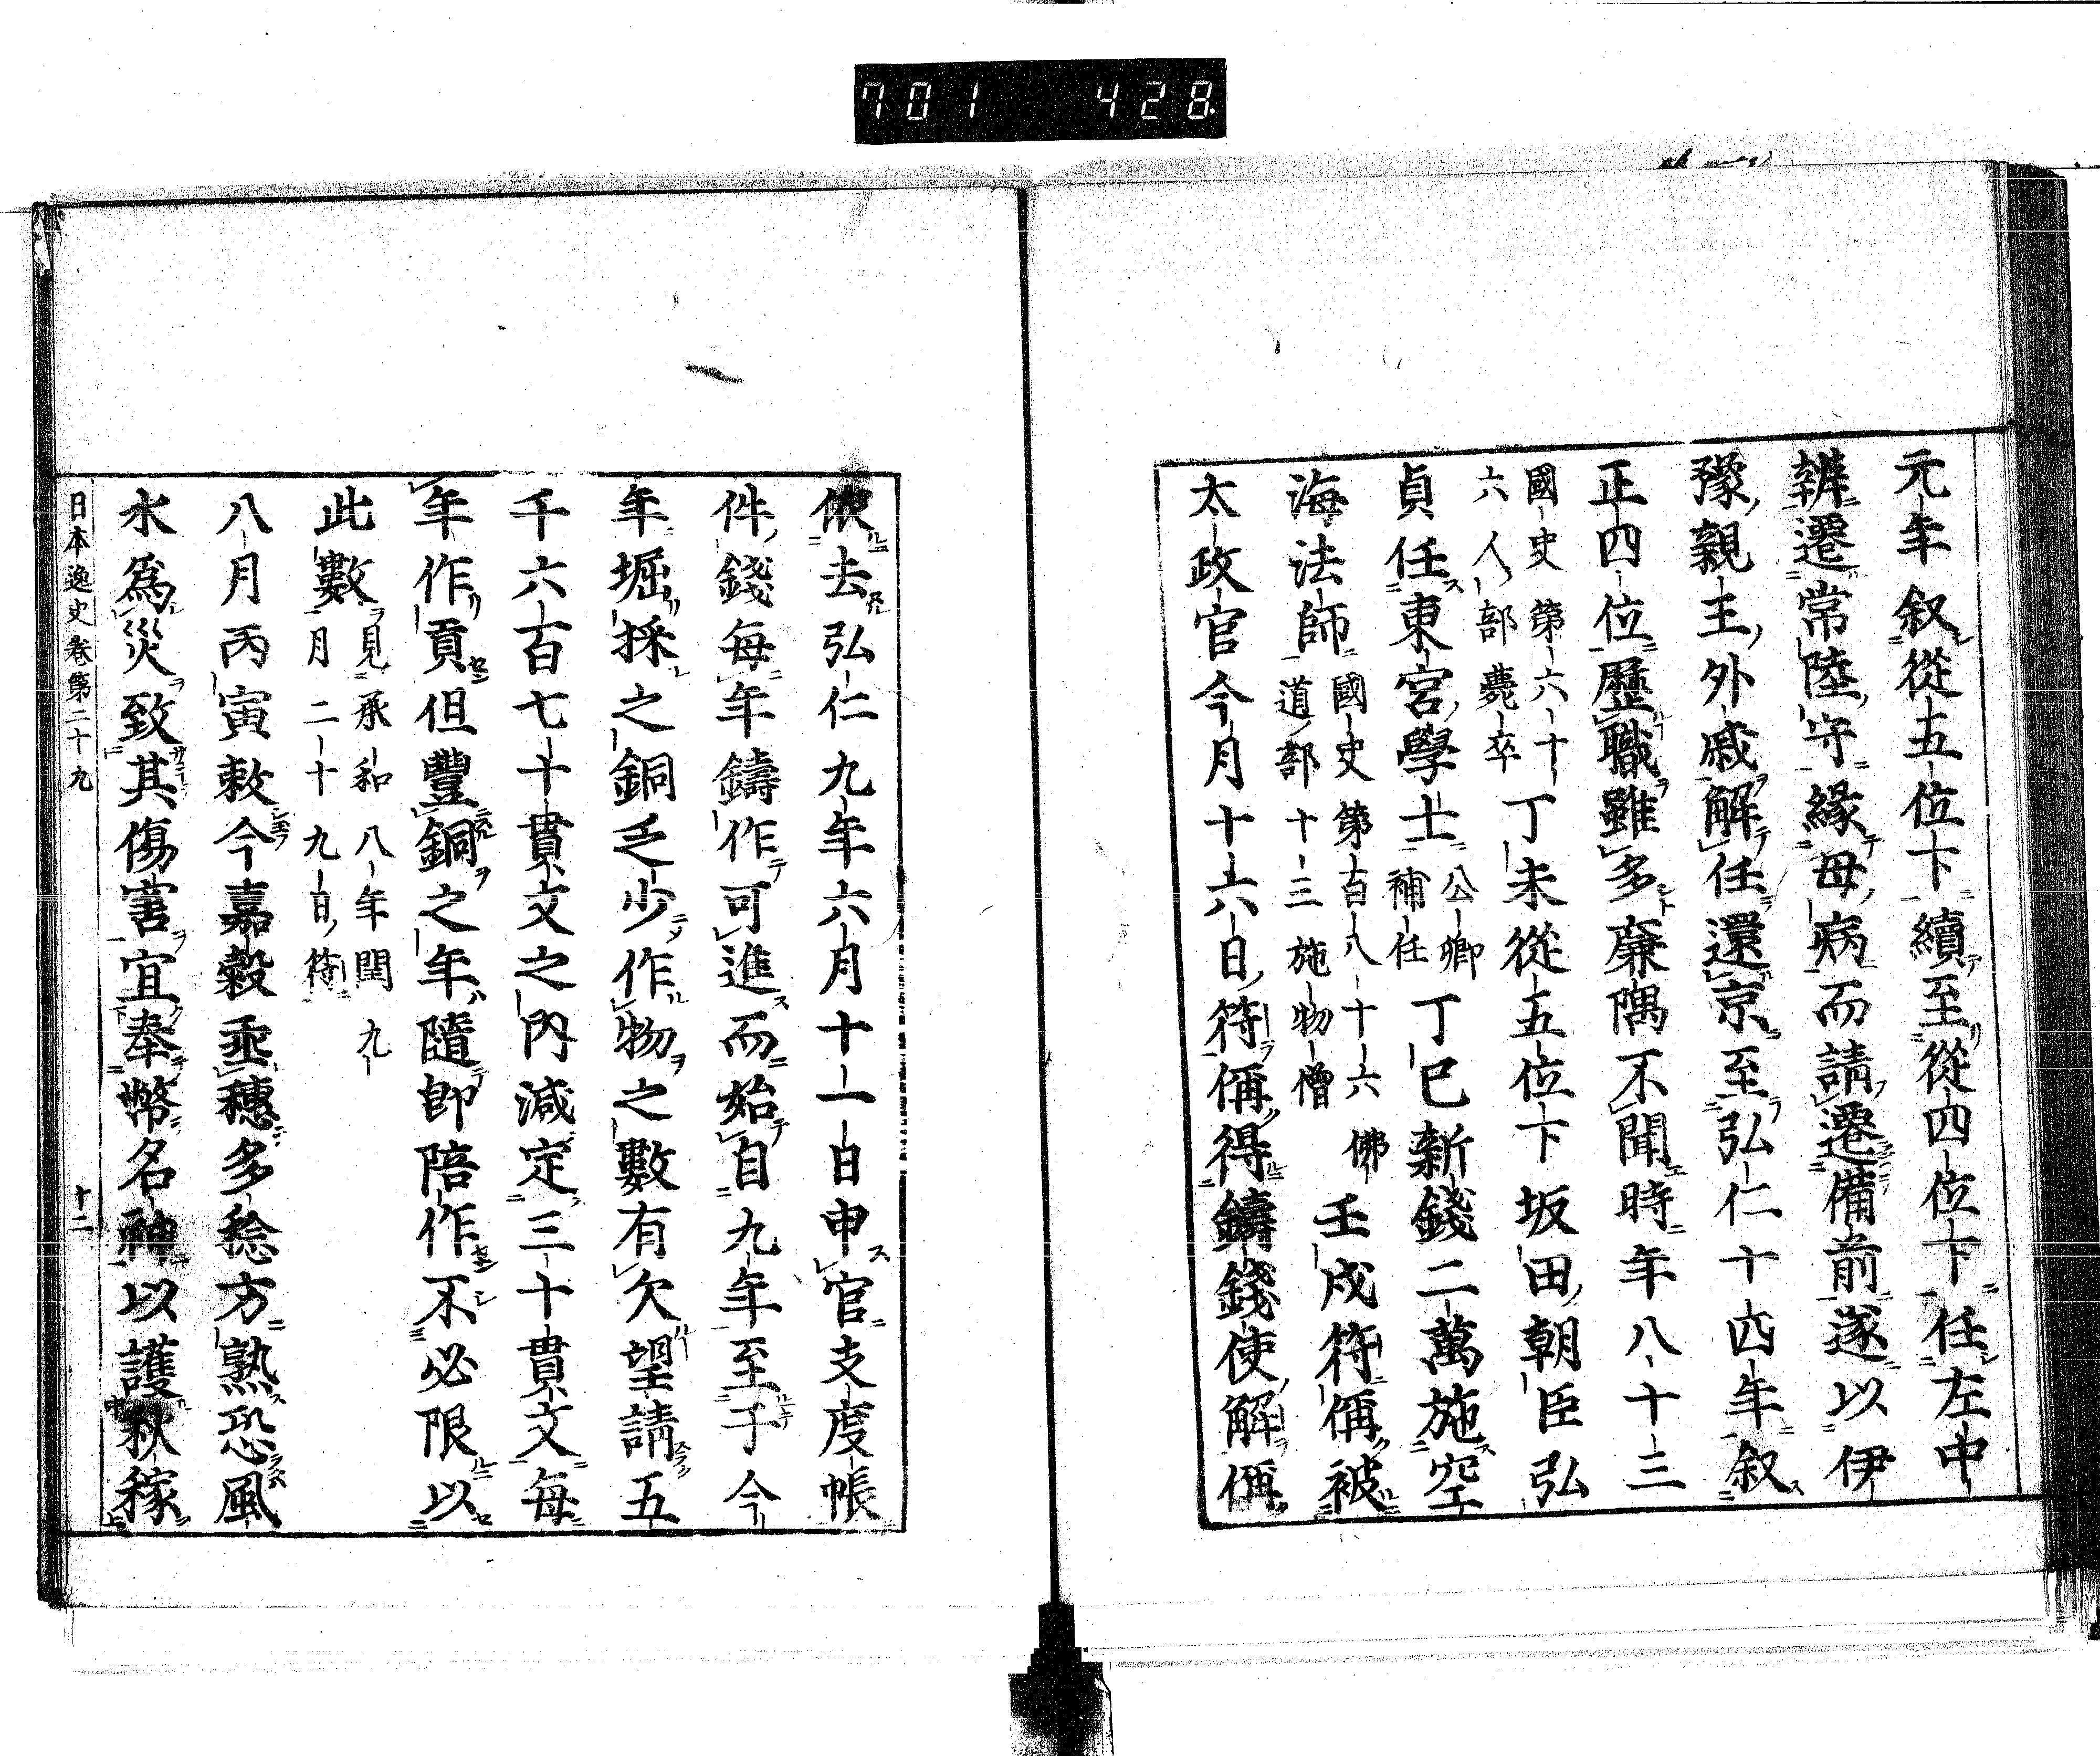 701 428
元年叙從五位下續至從四位下任左中
辨遷常陸守緣母病而請遷備前遂以伊
豫親王外戚解任還京至弘仁十四年叙
正四位歷職雖多廉隅不聞時年八十三
國史第六十
六人部薨卒
丁未從五位下坂田朝臣弘
貞任東宮學士
公卿
補任
丁巳新錢二萬施空
海法師
國史第百八十六佛
道部十三施物僧
壬戌符偁被
太政官今月十六日符偁得鑄錢使解偁
依去弘仁九年六月十一日申官支度帳
件錢每年鑄作可進而始自九年至于今
年堀採之銅乏少作物之數有欠望請五
千六百七十貫文之內減定三十貫文每
年作貢但豐銅之年隨即陪作不必限以
此數
見承和八年閏九
月二十九日符
八月丙寅敕今嘉穀垂穗多稔方熟恐風
水爲災致其傷害宜奉幣名神以護秋稼
日本逸史卷第二十九 十二